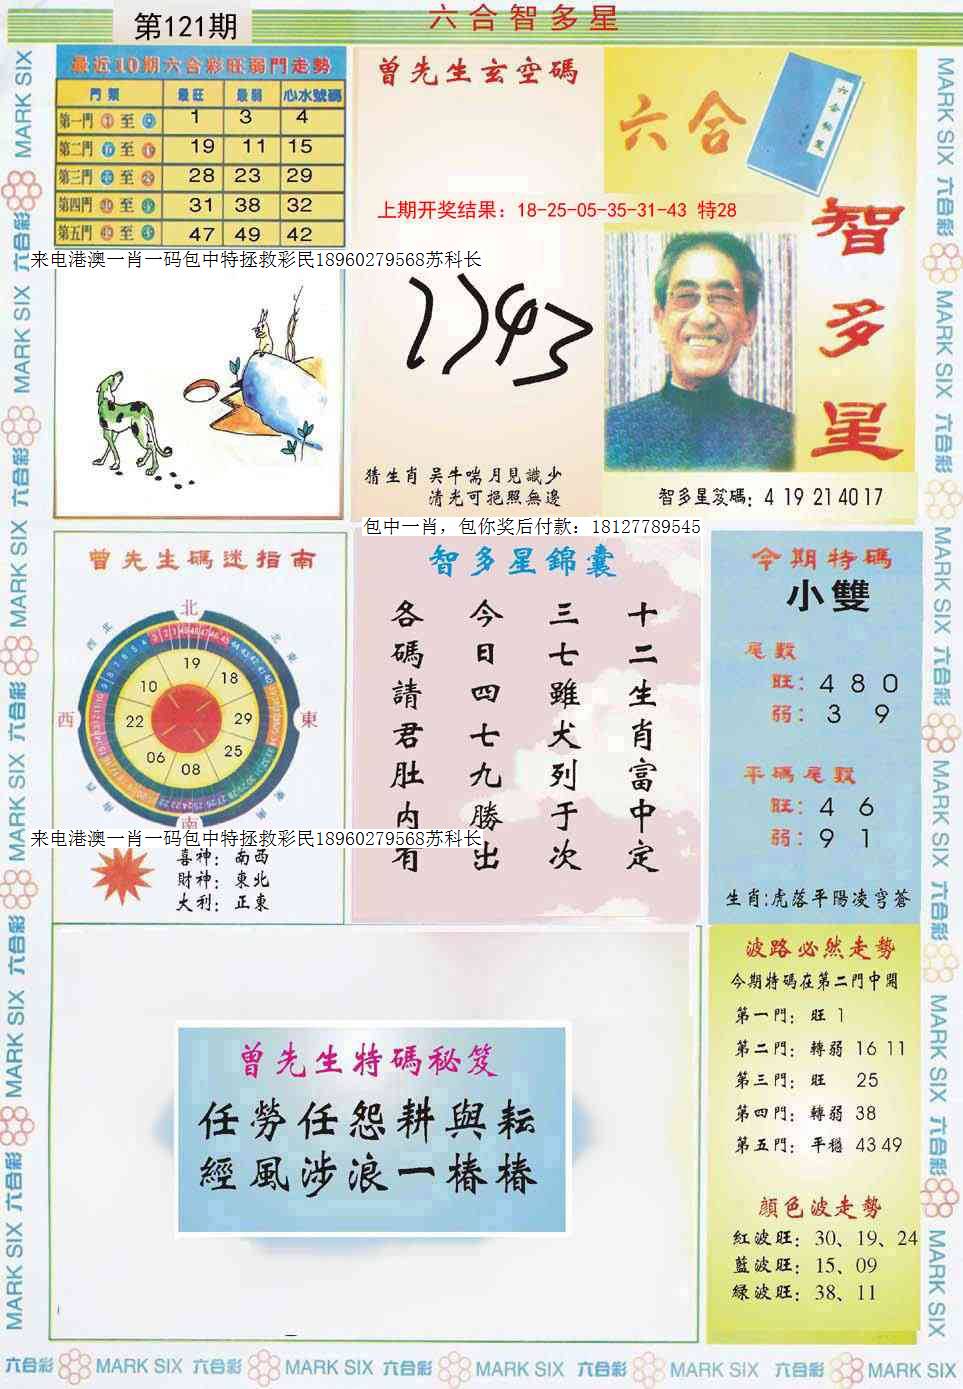 第121期
六合智多星
最近10期六合彩旺弱門走勢
門類 最旺 最弱 心水號碼
第一門 至 1 3 4
第二門 至 19 11 15
第三門 至 28 23 29
第四門 至 31 38 32
第五門 至 47 49 42
来电港澳一肖一码包中特拯救彩民18960279568苏科长
曾先生玄空碼
上期开奖结果：18-25-05-35-31-43 特28
猜生肖 吴牛喘月見識少
清光可挹照無邊
六合
智多星
智多星笈碼：4 19 21 40 17
包中一肖，包你奖后付款：18127789545
曾先生碼迷指南
北
西北
北東
19
10
18
西
22
29
東
06
25
08
西南
東南
南
来电港澳一肖一码包中特拯救彩民18960279568苏科长
喜神：南西
財神：東北
大利：正東
智多星錦囊
十二生肖富中定
三七雖犬列于次
今日四七九勝出
各碼請君肚内有
今期特碼
小雙
尾數
旺：4 8 0
弱：3 9
平碼尾數
旺：4 6
弱：9 1
生肖:虎落平陽凌穹蒼
曾先生特碼秘笈
任勞任怨耕與耘
經風涉浪一樁樁
波路必然走勢
今期特碼在第二門中開
第一門：旺 1
第二門：轉弱 16 11
第三門：旺 25
第四門：轉弱 38
第五門：平穩 43 49
顔色波走勢
紅波旺：30、19、24
藍波旺：15、09
緑波旺：38、11
MARK SIX 六合彩 MARK SIX 六合彩 MARK SIX 六合彩 MARK SIX 六合彩 MARK SIX